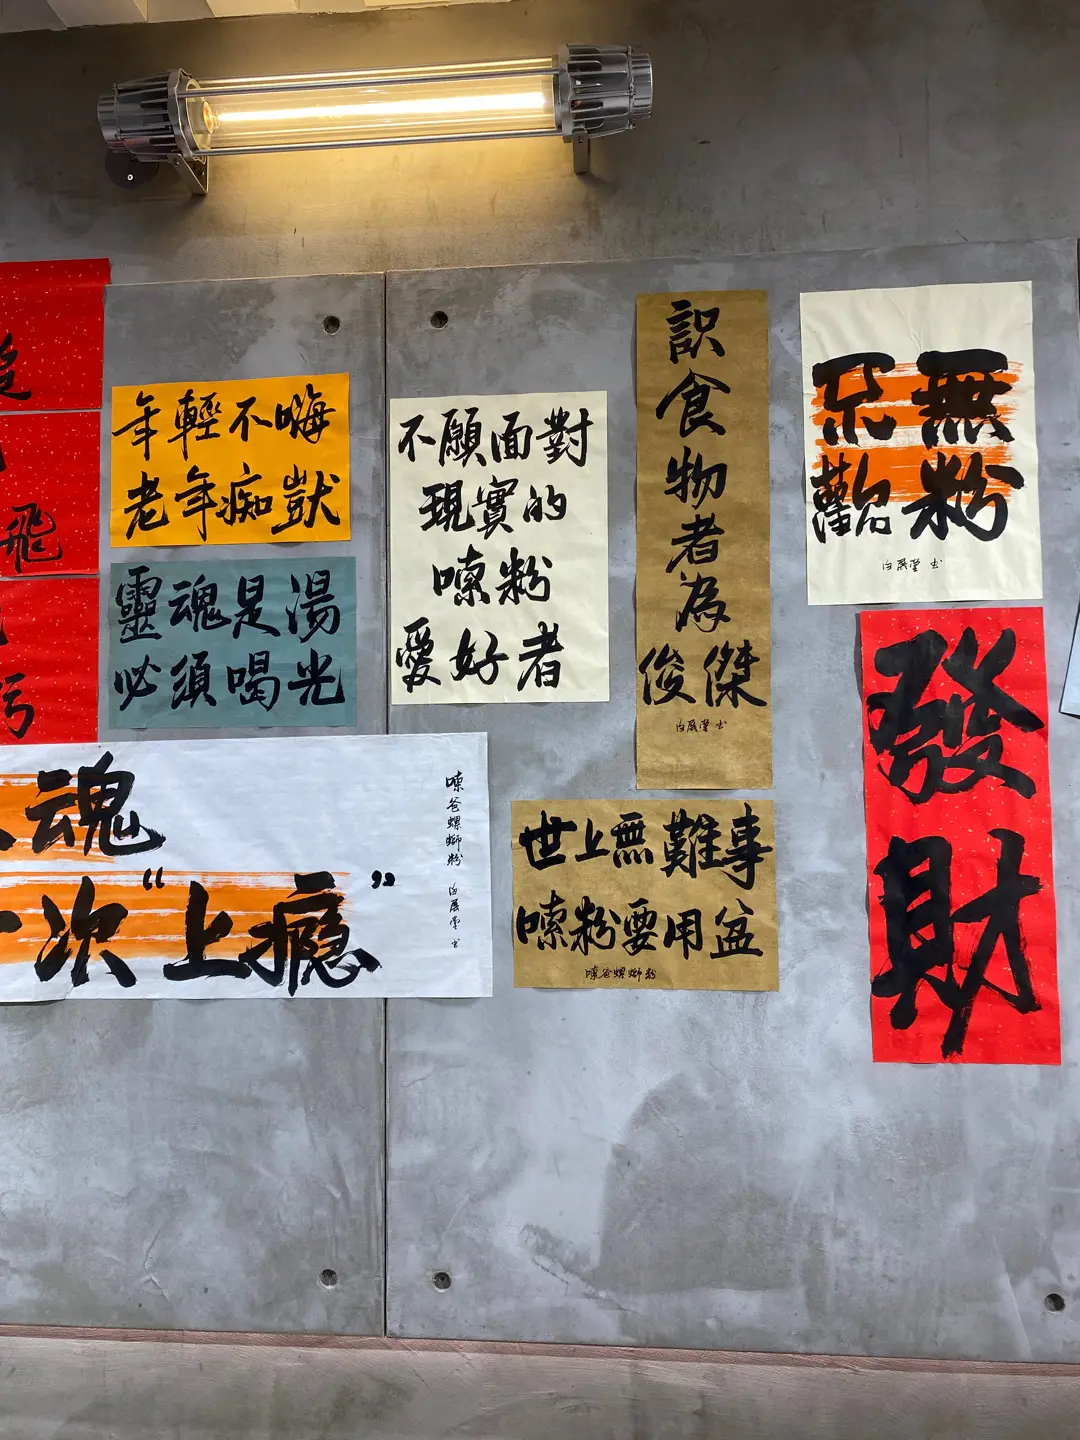 飛
年輕不嗨
老年痴獃
靈魂是湯
必須喝光
不願面對
現實的
嗦粉
愛好者
識食物者為
俊傑
白展堂书
無粉
不歡
白展堂书
發財
魂
一次“上瘾”
嗦爸螺螄粉 白展堂书
世上無難事
嗦粉要用盆
嗦爸螺螄粉